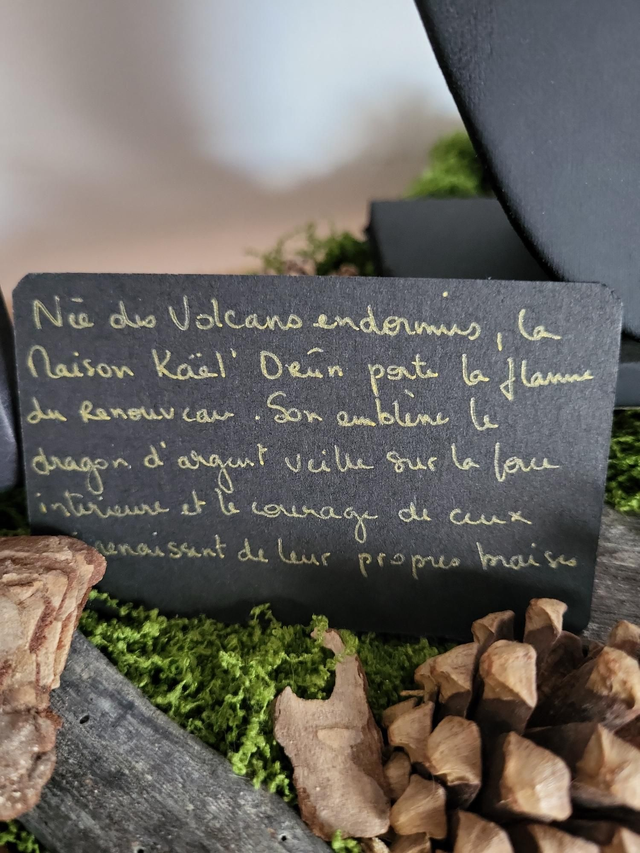 Née des Volcans endormis, la
Maison Kaël' Drûn porte la flamme
du Renouveau. Son emblème le
dragon d'argent veille sur la force
intérieure et le courage de ceux
renaissent de leur propres braises